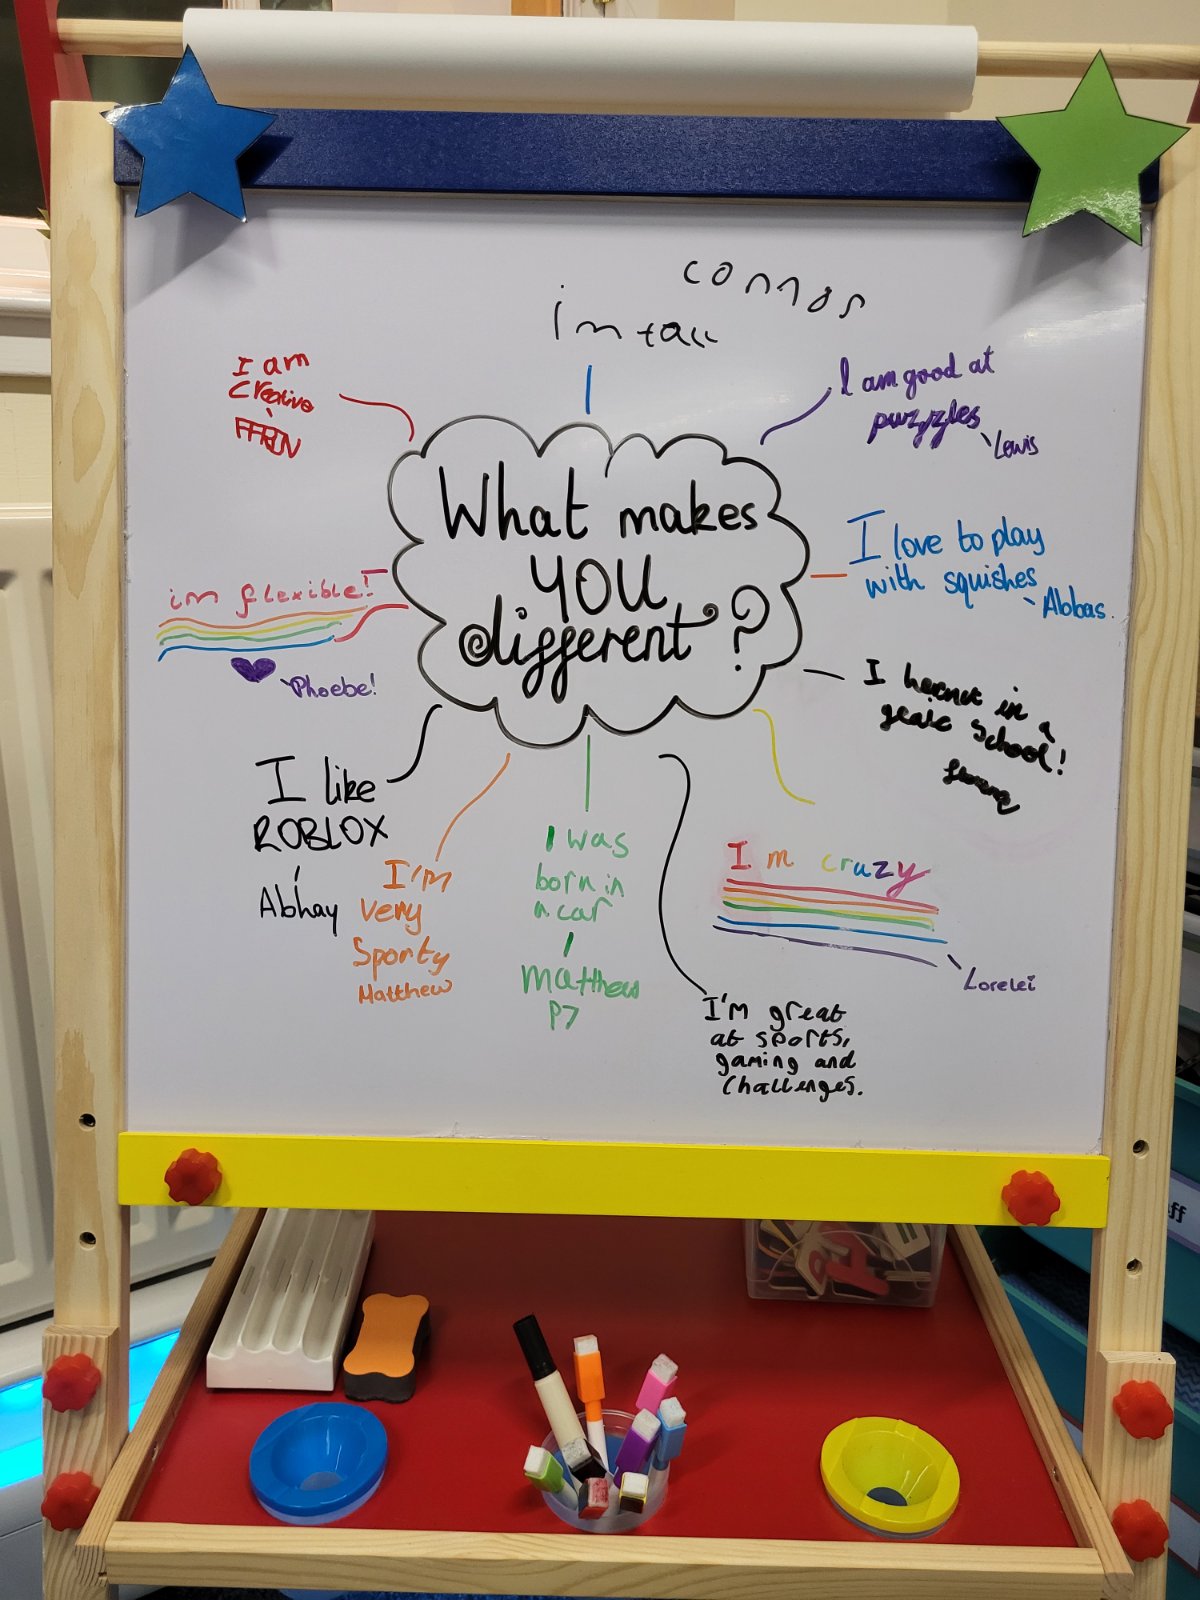 connor
im tall
I am
Creative
I am good at
puzzles
Lewis
What makes
YOU
different?
I love to play
with squishes
Abbas.
im flexible!
Phoebe!
I
in a
school!
I like
ROBLOX
Abhay
I'm
very
Sporty
Matthew
I was
born in
a car
Matthew
P7
I'm great
at sports,
gaming and
challenges.
Im crazy
Lorelei
ff